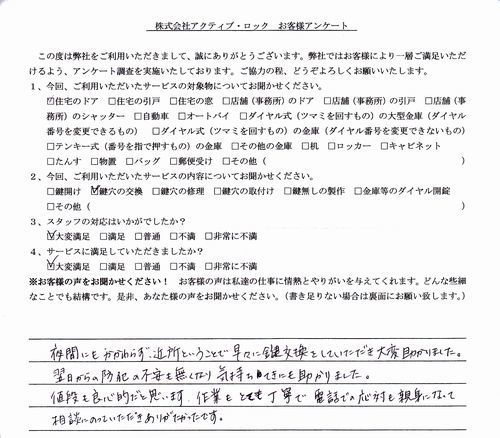 株式会社アクティブ・ロック　お客様アンケート
この度は弊社をご利用いただきまして、誠にありがとうございます。弊社ではお客様により一層ご満足いただ
けるよう、アンケート調査を実施いたしております。ご協力の程、どうぞよろしくお願いいたします。
1、今回、ご利用いただいたサービスの対象物についてお聞かせください。
☑住宅のドア　□住宅の引戸　□住宅の窓　□店舗（事務所）のドア　□店舗（事務所）の引戸　□店舗（事
務所）のシャッター　□自動車　□オートバイ　□ダイヤル式（ツマミを回すもの）の大型金庫（ダイヤル
番号を変更できるもの）　□ダイヤル式（ツマミを回すもの）の金庫（ダイヤル番号を変更できないもの）
□テンキー式（番号を指で押すもの）の金庫　□その他の金庫　□机　□ロッカー　□キャビネット
□たんす　□物置　□バッグ　□郵便受け　□その他（　　　　　　　　　　）
2、今回、ご利用いただいたサービスの内容についてお聞かせください。
□鍵開け　☑鍵穴の交換　□鍵穴の修理　□鍵穴の取付け　□鍵無しの製作　□金庫等のダイヤル開錠
□その他（　　　　　　　　　　）
3、スタッフの対応はいかがでしたか？
☑大変満足　□満足　□普通　□不満　□非常に不満
4、サービスに満足していただきましたか？
☑大変満足　□満足　□普通　□不満　□非常に不満
※お客様の声をお聞かせください！　お客様の声は私達の仕事に情熱とやりがいを与えてくれます。どんな些細
なことでも結構です。是非、あなた様の声をお聞かせください。（書き足りない場合は裏面にお願い致します。）
夜間にもかかわらず、近所ということで早々に鍵交換をしていただき大変助かりました。
翌日からの防犯の不安も無くなり気持ち的にも助かりました。
値段も良心的だと思います。作業もとても丁寧で電話での応対も親身になって
相談にのっていただきありがたかったです。